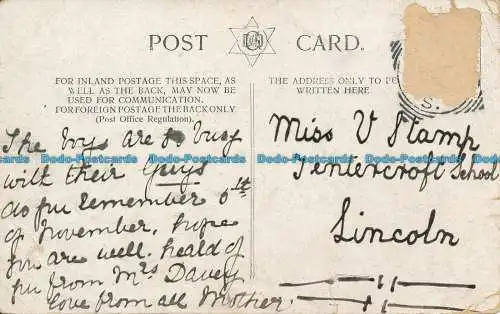 POST CARD.
FOR INLAND POSTAGE THIS SPACE, AS
WELL AS THE BACK, MAY NOW BE
USED FOR COMMUNICATION.
FOR FOREIGN POSTAGE THE BACK ONLY
(Post Office Regulation).
THE ADDRESS ONLY TO BE
WRITTEN HERE.
The boys are so busy
with their Guys
do you remember 5th
of November, hope
you are well. heard of
you from Mrs Davey
love from all Mother.
Miss V Stamp
Tentercroft School
Lincoln
S.
Dodo-Postcards Dodo-Postcards Dodo-Postcards Dodo-Postcards Dodo-Postcards